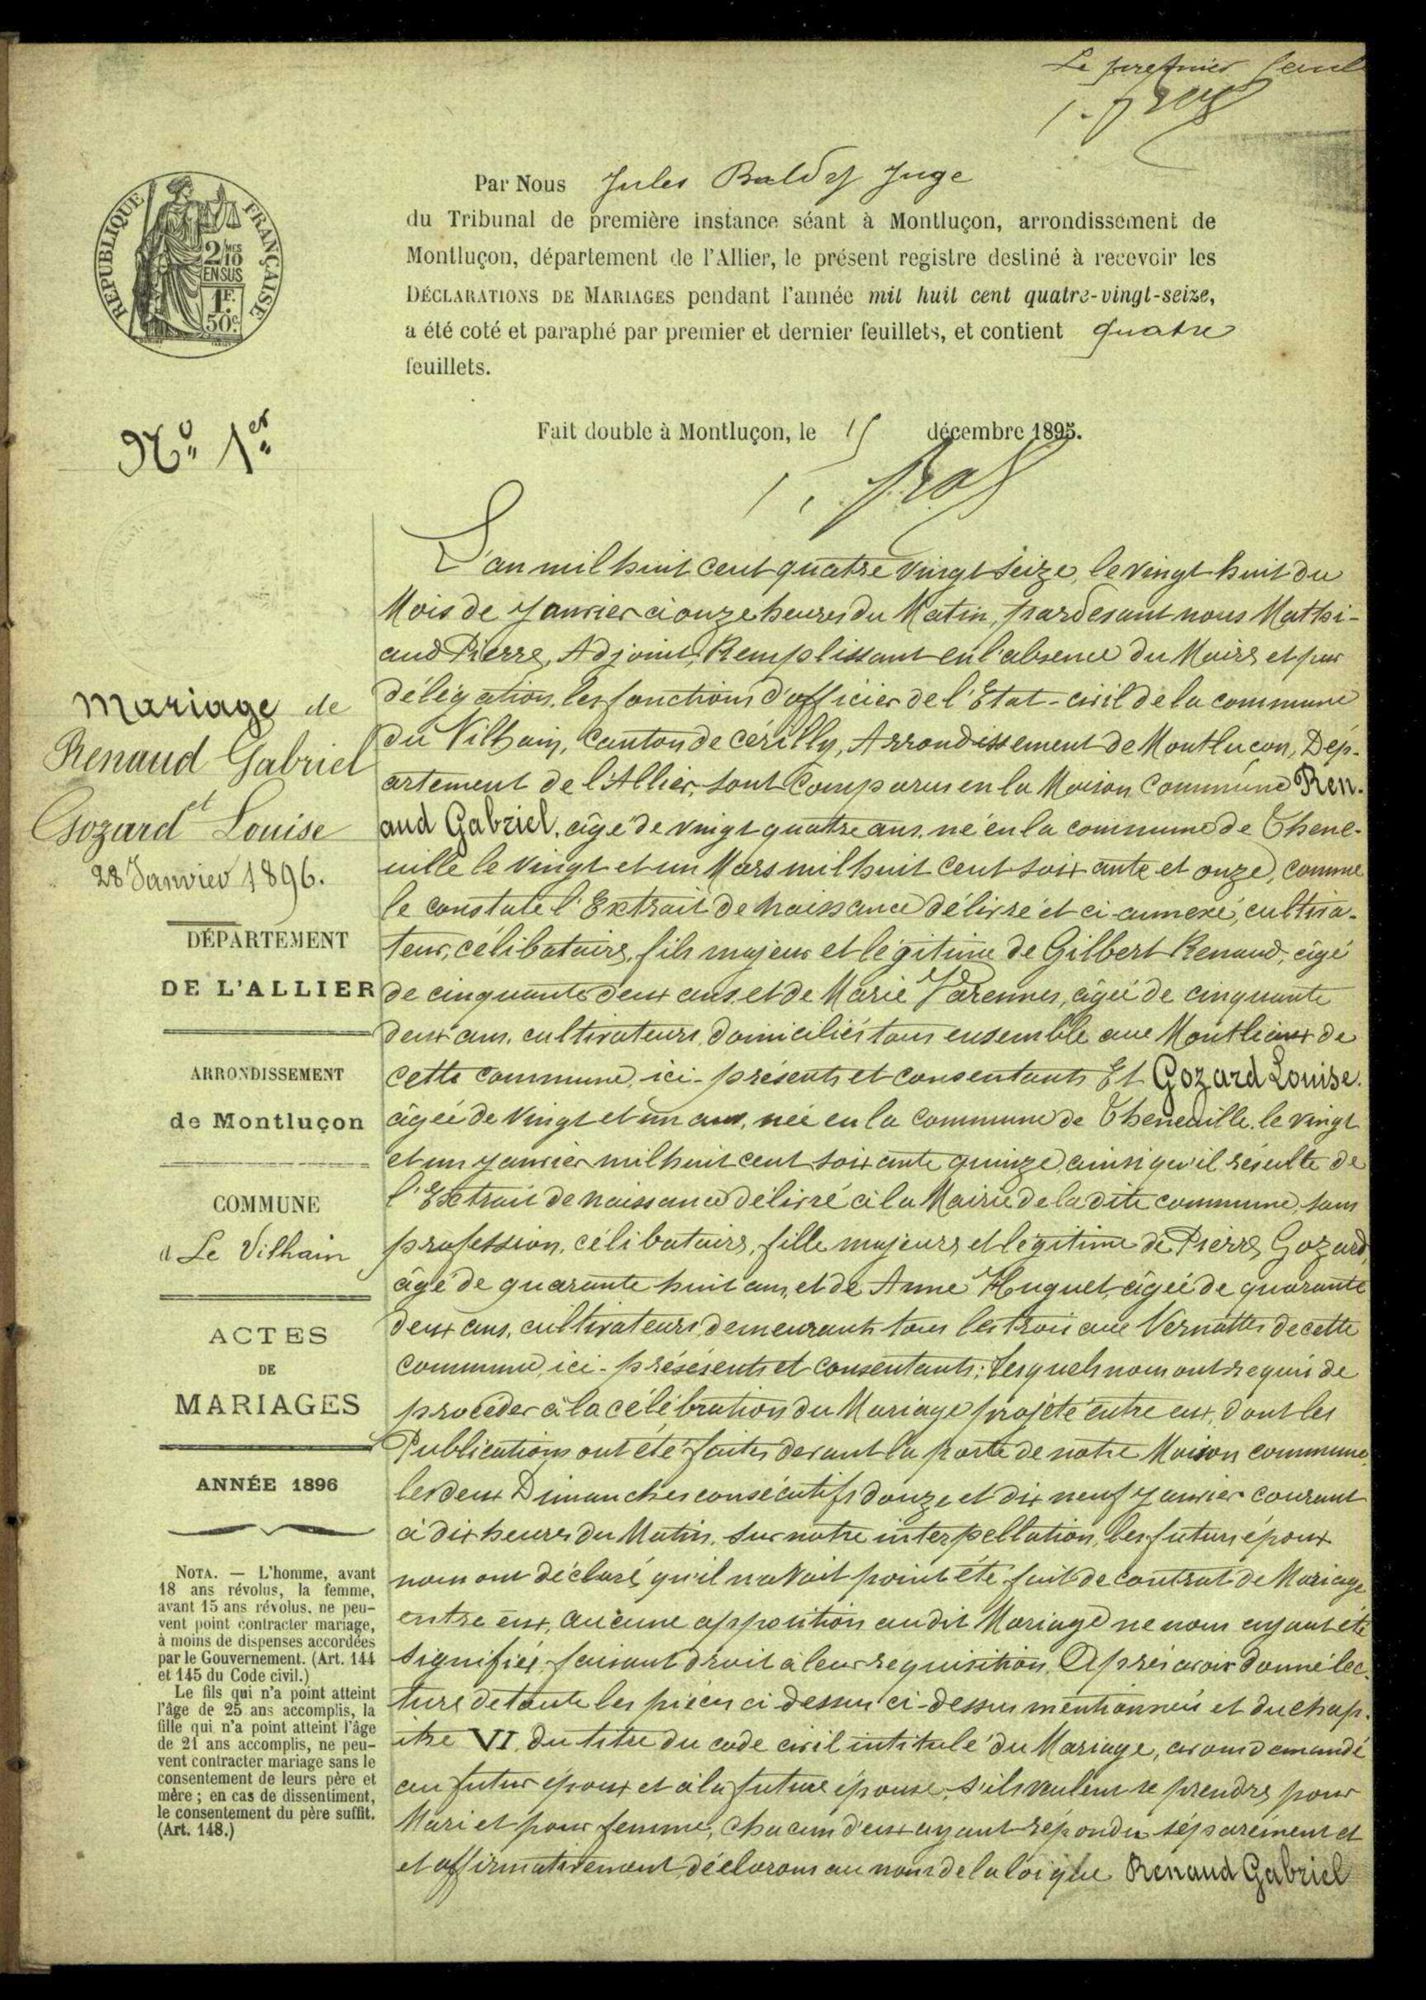 Le premier feuil
RÉPUBLIQUE FRANÇAISE
2/10 MES
EN SUS
1F.
50c.
Par Nous Jules Baldy Juge
du Tribunal de première instance séant à Montluçon, arrondissement de
Montluçon, département de l'Allier, le présent registre destiné à recevoir les
DÉCLARATIONS DE MARIAGES pendant l'année mil huit cent quatre-vingt-seize,
a été coté et paraphé par premier et dernier feuillets, et contient quatre
feuillets.
Fait double à Montluçon, le 15 décembre 1895.
No 1er
Mariage de
Renaud Gabriel
et
Gozard Louise
28 Janvier 1896.
DÉPARTEMENT
DE L'ALLIER
ARRONDISSEMENT
de Montluçon
COMMUNE
d Le Vilhain
ACTES
DE
MARIAGES
ANNÉE 1896
NOTA. — L'homme, avant
18 ans révolus, la femme,
avant 15 ans révolus, ne peu-
vent point contracter mariage,
à moins de dispenses accordées
par le Gouvernement. (Art. 144
et 145 du Code civil.)
Le fils qui n'a point atteint
l'âge de 25 ans accomplis, la
fille qui n'a point atteint l'âge
de 21 ans accomplis, ne peu-
vent contracter mariage sans le
consentement de leurs père et
mère ; en cas de dissentiment,
le consentement du père suffit.
(Art. 148.)
L'an mil huit cent quatre vingt seize, le vingt huit du
Mois de Janvier à onze heures du Matin, pardevant nous Mathi-
aud Pierre, Adjoint, Remplissant en l'absence du Maire et par
délégation, les fonctions d'officier de l'Etat-civil de la commune
du Vilhain, Canton de Cérilly, Arrondissement de Montluçon, Dép-
artement de l'Allier, sont Comparus en la Maison Commune Ren-
aud Gabriel, âgé de vingt quatre ans, né en la commune de Thene-
uille le vingt et un Mars mil huit cent soixante et onze, comme
le constate l'Extrait de naissance délivré et ci-annexé, cultiva-
teur, célibataire, fils majeur et légitime de Gilbert Renaud, âgé
de cinquante deux ans, et de Marie Varennes, âgée de cinquante
deux ans, cultivateurs, domiciliés tous ensemble aux Montliaux de
cette commune, ici-présents et consentants, Et Gozard Louise,
âgée de vingt et un ans, née en la commune de Theneuille, le vingt
et un Janvier mil huit cent soixante quinze, ainsi qu'il résulte de
l'Extrait de naissance délivré à la Mairie de la dite commune, sans
profession, célibataire, fille majeure et légitime de Pierre Gozard,
âgé de quarante huit ans, et de Anne Huguet, âgée de quarante
deux ans, cultivateurs, demeurants tous les trois aux Vernattes de cette
commune, ici-présésents et consentants; Lesquels nous ont requis de
procéder à la célébration du Mariage projeté entre eux, dont les
Publications ont été faites devant la porte de notre Maison commune,
les deux Dimanches consécutifs douze et dix neuf Janvier courant
à dix heures du Matin. Sur notre interpellation, les futurs époux
nous ont déclaré, qu'il n'avait point été fait de contrat de Mariage
entre eux, aucune apposition audit Mariage ne nous ayant été
signifiée, faisant droit à leur réquisition, Après avoir donné lec-
ture de toute les pièces ci-dessus ci-dessus mentionnées et du chap-
itre VI, du titre du code civil intitulé du Mariage, avons demandé
au futur époux et à la future épouse, s'ils veulent se prendre pour
Mari et pour femme, chacun d'eux ayant répondu séparément et
et affirmativement, déclarons au nom de la loi que Renaud Gabriel